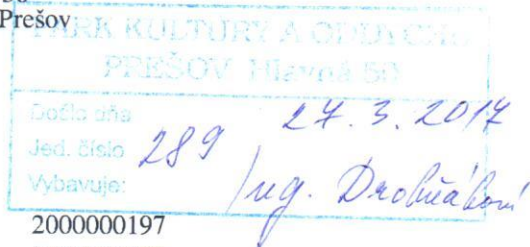 Prešov
PARK KULTURY A ODDYCHU
PREŠOV, Hlavná 50
Došlo dňa 27. 3. 2017
Jed. číslo 289
Vybavuje: Ing. Drobňáková
2000000197